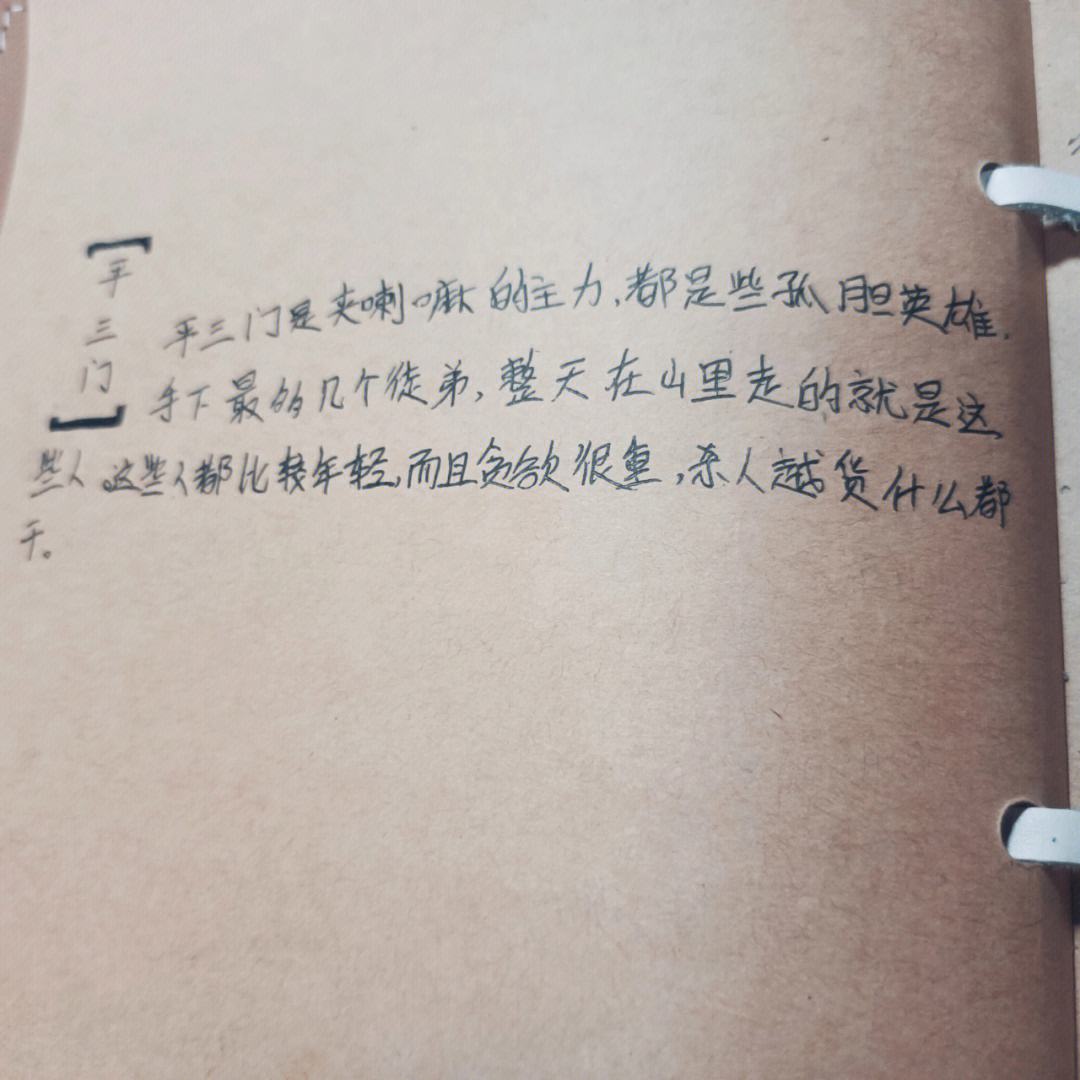 【平三门】
平三门是夹喇嘛的主力,都是些孤胆英雄.
手下最多几个徒弟,整天在山里走的就是这
些人,这些人都比较年轻,而且贪欲很重,杀人越货什么都
干。